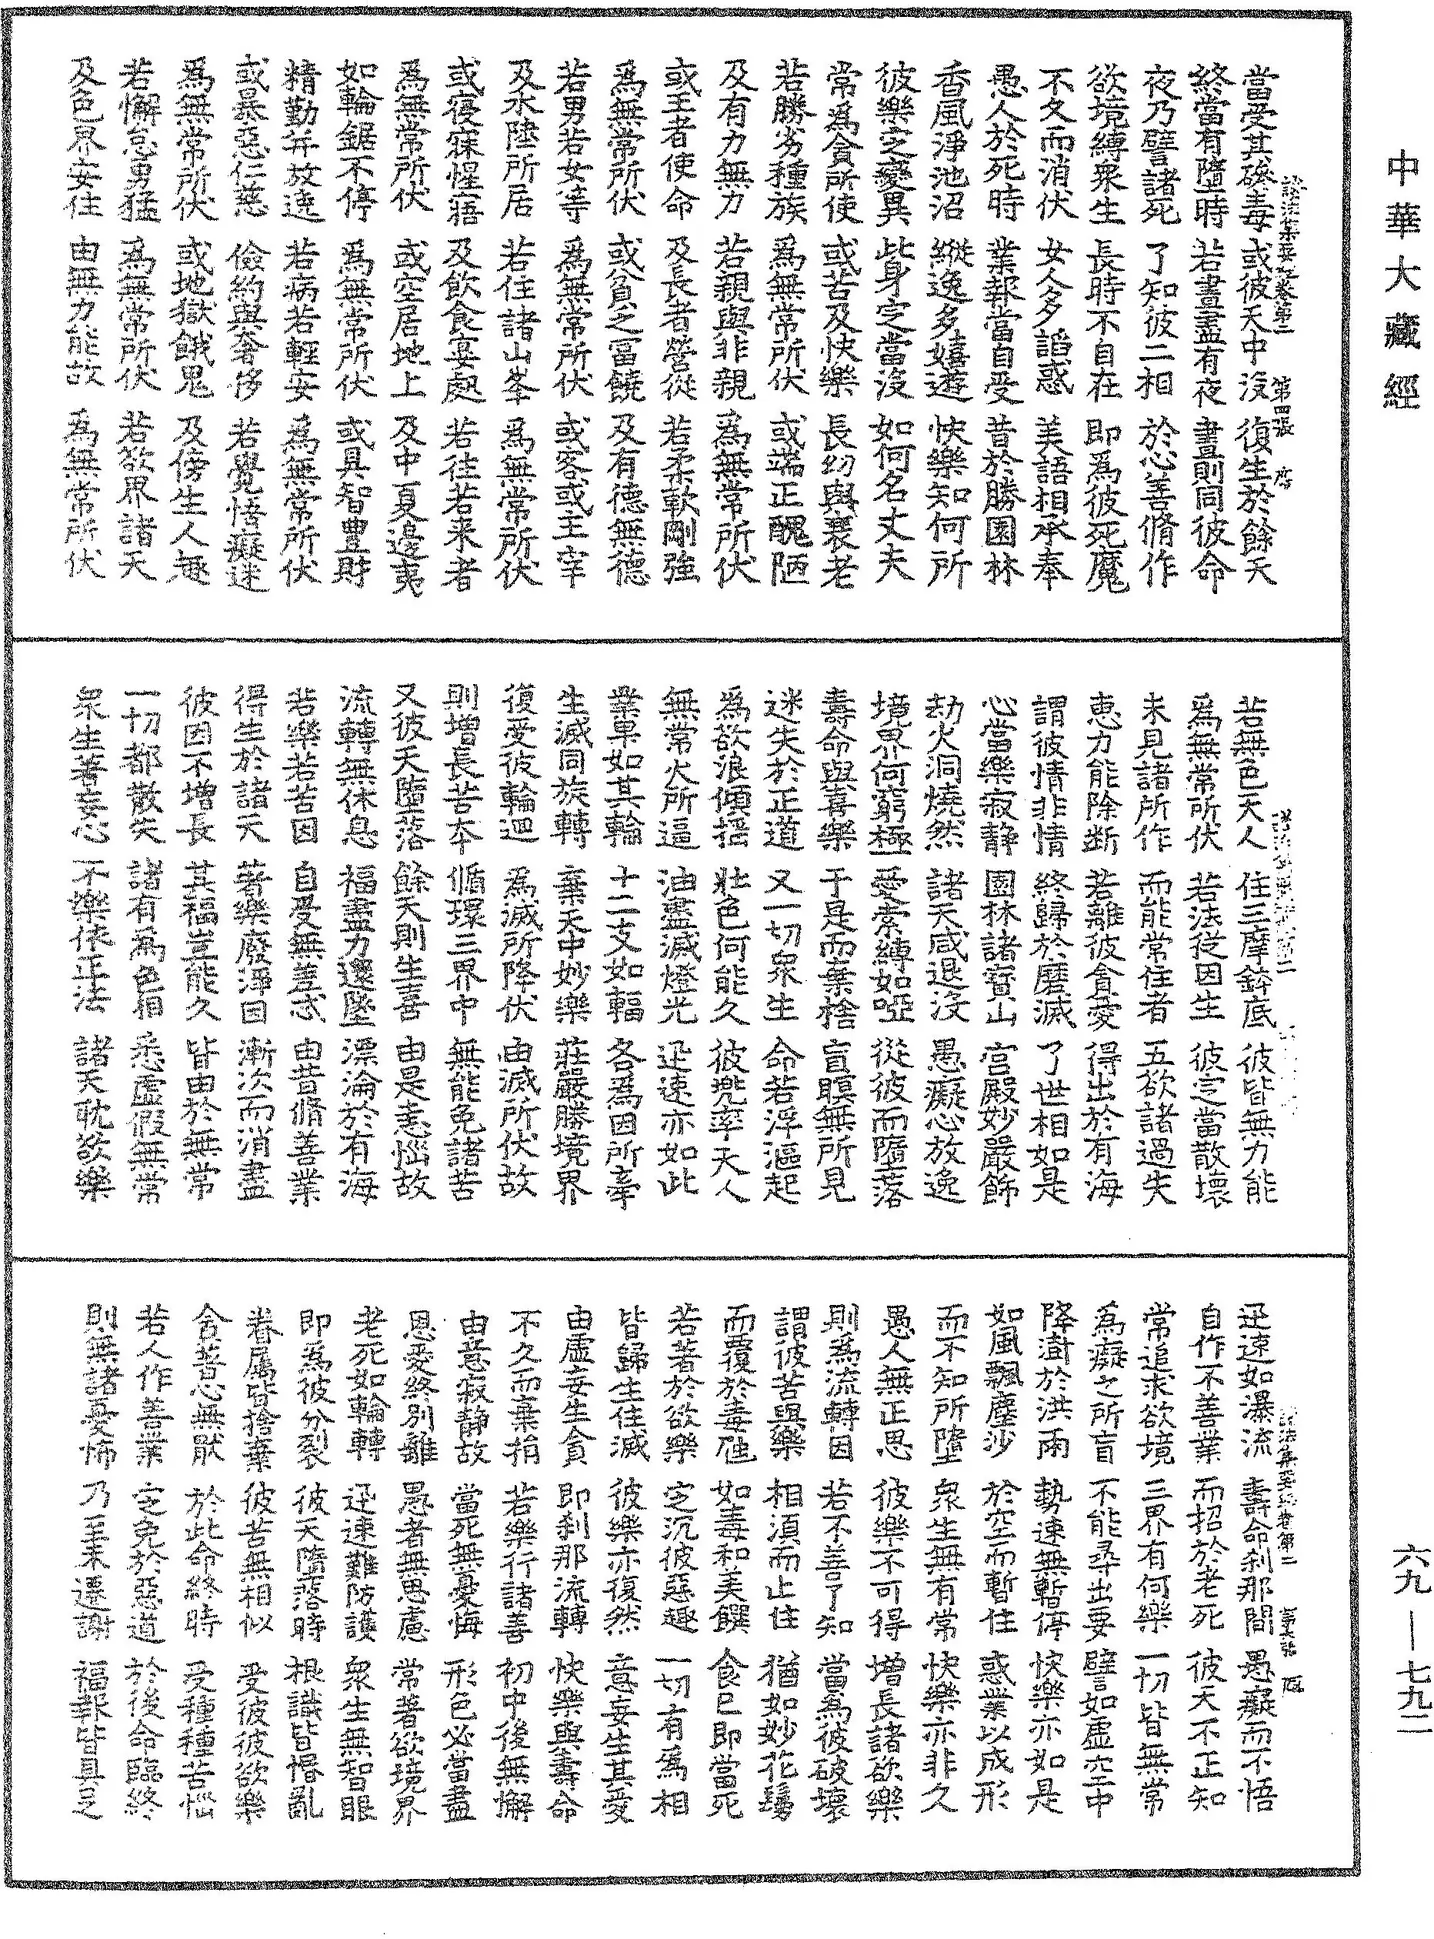 中華大藏經
六九—七九二
諸法集要經卷第二 第四張 席
當受其磣毒 或彼天中沒 復生於餘天
終當有墮時 若晝盡有夜 晝則同彼命
夜乃譬諸死 了知彼二相 於心善脩作
欲境縛衆生 長時不自在 即爲彼死魔
不久而消伏 女人多謟惑 美語相承奉
愚人於死時 業報當自受 昔於勝園林
香風淨池沼 縱逸多嬉遊 快樂知何所
彼樂之變異 此身定當沒 如何名丈夫
常爲貪所使 或苦及快樂 長幼與衰老
若勝劣種族 爲無常所伏 或端正醜陋
及有力無力 若親與非親 爲無常所伏
或王者使命 及長者營從 若柔軟剛強
爲無常所伏 或貧乏富饒 及有德無德
若男若女等 爲無常所伏 或客或主宰
及水陸所居 若住諸山峯 爲無常所伏
或寢寐惺寤 及飲食宴處 若往若来者
爲無常所伏 或空居地上 及中夏邊夷
如輪鋸不停 爲無常所伏 或具智豊財
精勤并放逸 若病若輕安 爲無常所伏
或暴惡仁慈 儉約與奢侈 若覺悟癡迷
爲無常所伏 或地獄餓鬼 及傍生人趣
若懈怠勇猛 爲無常所伏 若欲界諸天
及色界安住 由無力能故 爲無常所伏
若無色天人 住三摩鉢底 彼皆無力能
爲無常所伏 若法從因生 彼定當散壞
未見諸所作 而能常住者 五欲諸過失
惠力能除断 若離彼貪愛 得出於有海
謂彼情非情 終歸於磨滅 了世相如是
心當樂寂静 園林諸寶山 宫殿妙嚴飾
劫火洞燒然 諸天咸退沒 愚癡心放逸
境界何窮極 愛索縛如啞 從彼而墮落
壽命與喜樂 于是而棄捨 盲瞑無所見
迷失於正道 又一切衆生 命若浮漚起
爲欲浪傾揺 壯色何能久 彼兠率天人
無常火所逼 油盡滅燈光 迅速亦如此
業果如其輪 十二支如輻 各爲因所牽
生滅同旋轉 棄天中妙樂 莊嚴勝境界
復受彼輪迴 爲滅所降伏 由滅所伏故
則增長苦本 循環三界中 無能免諸苦
又彼天墮落 餘天則生喜 由是恚惱故
流轉無休息 福盡力還墜 漂淪於有海
若樂若苦因 自受無差忒 由昔脩善業
得生於諸天 著樂廢淨因 漸次而消盡
彼因不增長 其福豈能久 皆由於無常
一切都散失 諸有爲色相 悉虚假無常
衆生著妄心 不樂依正法 諸天耽欲樂
諸法集要經卷第二
迅速如瀑流 壽命刹那間 愚癡而不悟
自作不善業 而招於老死 彼天不正知
常追求欲境 三界有何樂 一切皆無常
為癡之所盲 不能尋出要 譬如虚空中
降澍於洪雨 勢速無暫停 快樂亦如是
如風飄塵沙 於空而暫住 惑業以成形
而不知所墮 衆生無有常 快樂亦非久
愚人無正思 彼樂不可得 增長諸欲樂
則爲流轉因 若不善了知 當爲彼破壞
謂彼苦與樂 相須而止住 猶如妙花鬘
而覆於毒虵 如毒和美饌 食已即當死
若著於欲樂 定沉彼惡趣 一切有爲相
皆歸生住滅 彼樂亦復然 意妄生其愛
由虚妄生貪 即刹那流轉 快樂與壽命
不久而棄捐 若樂行諸善 初中後無懈
由意寂静故 當死無憂悔 形色必當盡
恩愛終别離 愚者無思慮 常著欲境界
老死如輪轉 迅速難防護 衆生無智眼
即爲彼分裂 彼天墮落時 根識皆惛亂
眷屬皆捨棄 彼苦無相似 受彼彼欲樂
含著心無猒 於此命終時 受種種苦惱
若人作善業 定免於惡道 於後命臨終
則無諸憂怖 乃至未遷謝 福報皆具足